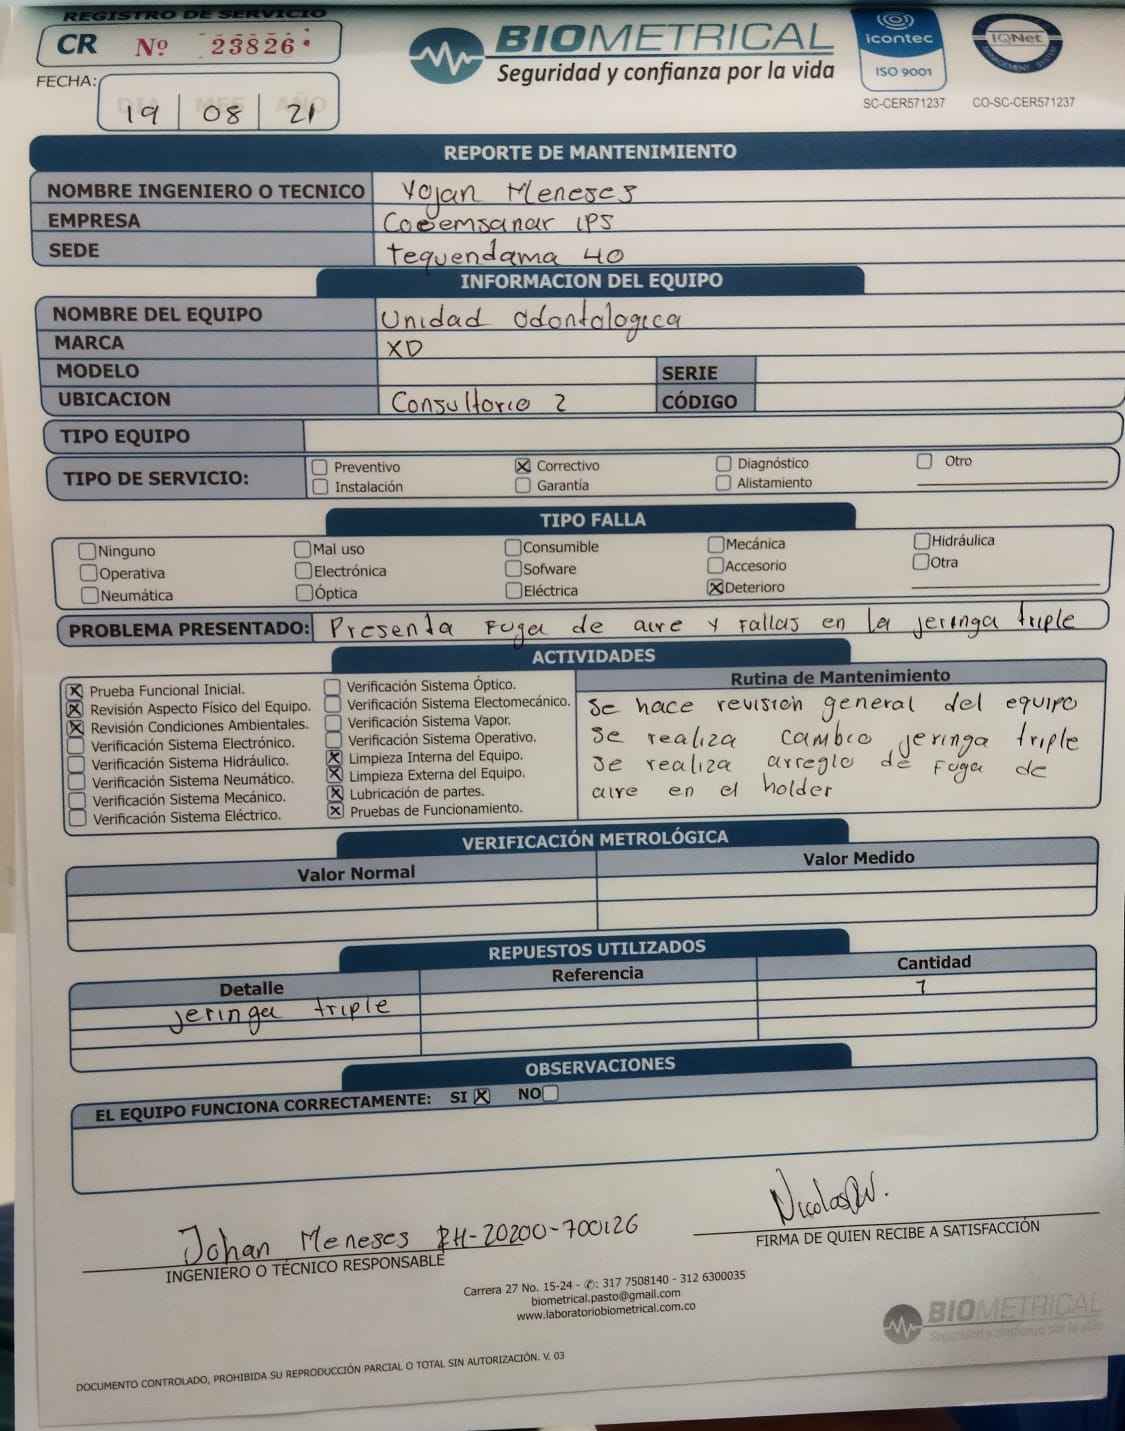 REGISTRO DE SERVICIO
CR Nº 23826
FECHA:
DIA MES AÑO
19 08 21
BIOMETRICAL
Seguridad y confianza por la vida
icontec
ISO 9001
SC-CER571237
IQNet
MANAGEMENT SYSTEM
CO-SC-CER571237
REPORTE DE MANTENIMIENTO
NOMBRE INGENIERO O TECNICO Yojan Meneses
EMPRESA Coeemsanar IPS
SEDE tequendama 40
INFORMACION DEL EQUIPO
NOMBRE DEL EQUIPO Unidad odontologica
MARCA XD
MODELO SERIE
UBICACION Consultorio 2 CÓDIGO
TIPO EQUIPO
TIPO DE SERVICIO:
Preventivo Correctivo Diagnóstico Otro
Instalación Garantía Alistamiento
TIPO FALLA
Ninguno Mal uso Consumible Mecánica Hidráulica
Operativa Electrónica Sofware Accesorio Otra
Neumática Óptica Eléctrica Deterioro
PROBLEMA PRESENTADO: Presenta Fuga de aire y Fallas en la jeringa triple
ACTIVIDADES
Prueba Funcional Inicial.
Revisión Aspecto Físico del Equipo.
Revisión Condiciones Ambientales.
Verificación Sistema Electrónico.
Verificación Sistema Hidráulico.
Verificación Sistema Neumático.
Verificación Sistema Mecánico.
Verificación Sistema Eléctrico.
Verificación Sistema Óptico.
Verificación Sistema Electomecánico.
Verificación Sistema Vapor.
Verificación Sistema Operativo.
Limpieza Interna del Equipo.
Limpieza Externa del Equipo.
Lubricación de partes.
Pruebas de Funcionamiento.
Rutina de Mantenimiento
Se hace revision general del equipo
Se realiza cambio jeringa triple
Se realiza arreglo de Fuga de
aire en el holder
VERIFICACIÓN METROLÓGICA
Valor Normal Valor Medido
REPUESTOS UTILIZADOS
Detalle Referencia Cantidad
jeringa triple 1
OBSERVACIONES
EL EQUIPO FUNCIONA CORRECTAMENTE: SI NO
Johan Meneses RH-20200-700126
INGENIERO O TÉCNICO RESPONSABLE
FIRMA DE QUIEN RECIBE A SATISFACCIÓN
Carrera 27 No. 15-24 - ✆: 317 7508140 - 312 6300035
biometrical.pasto@gmail.com
www.laboratoriobiometrical.com.co
BIOMETRICAL
Seguridad y confianza por la vida
DOCUMENTO CONTROLADO, PROHIBIDA SU REPRODUCCIÓN PARCIAL O TOTAL SIN AUTORIZACIÓN. V. 03